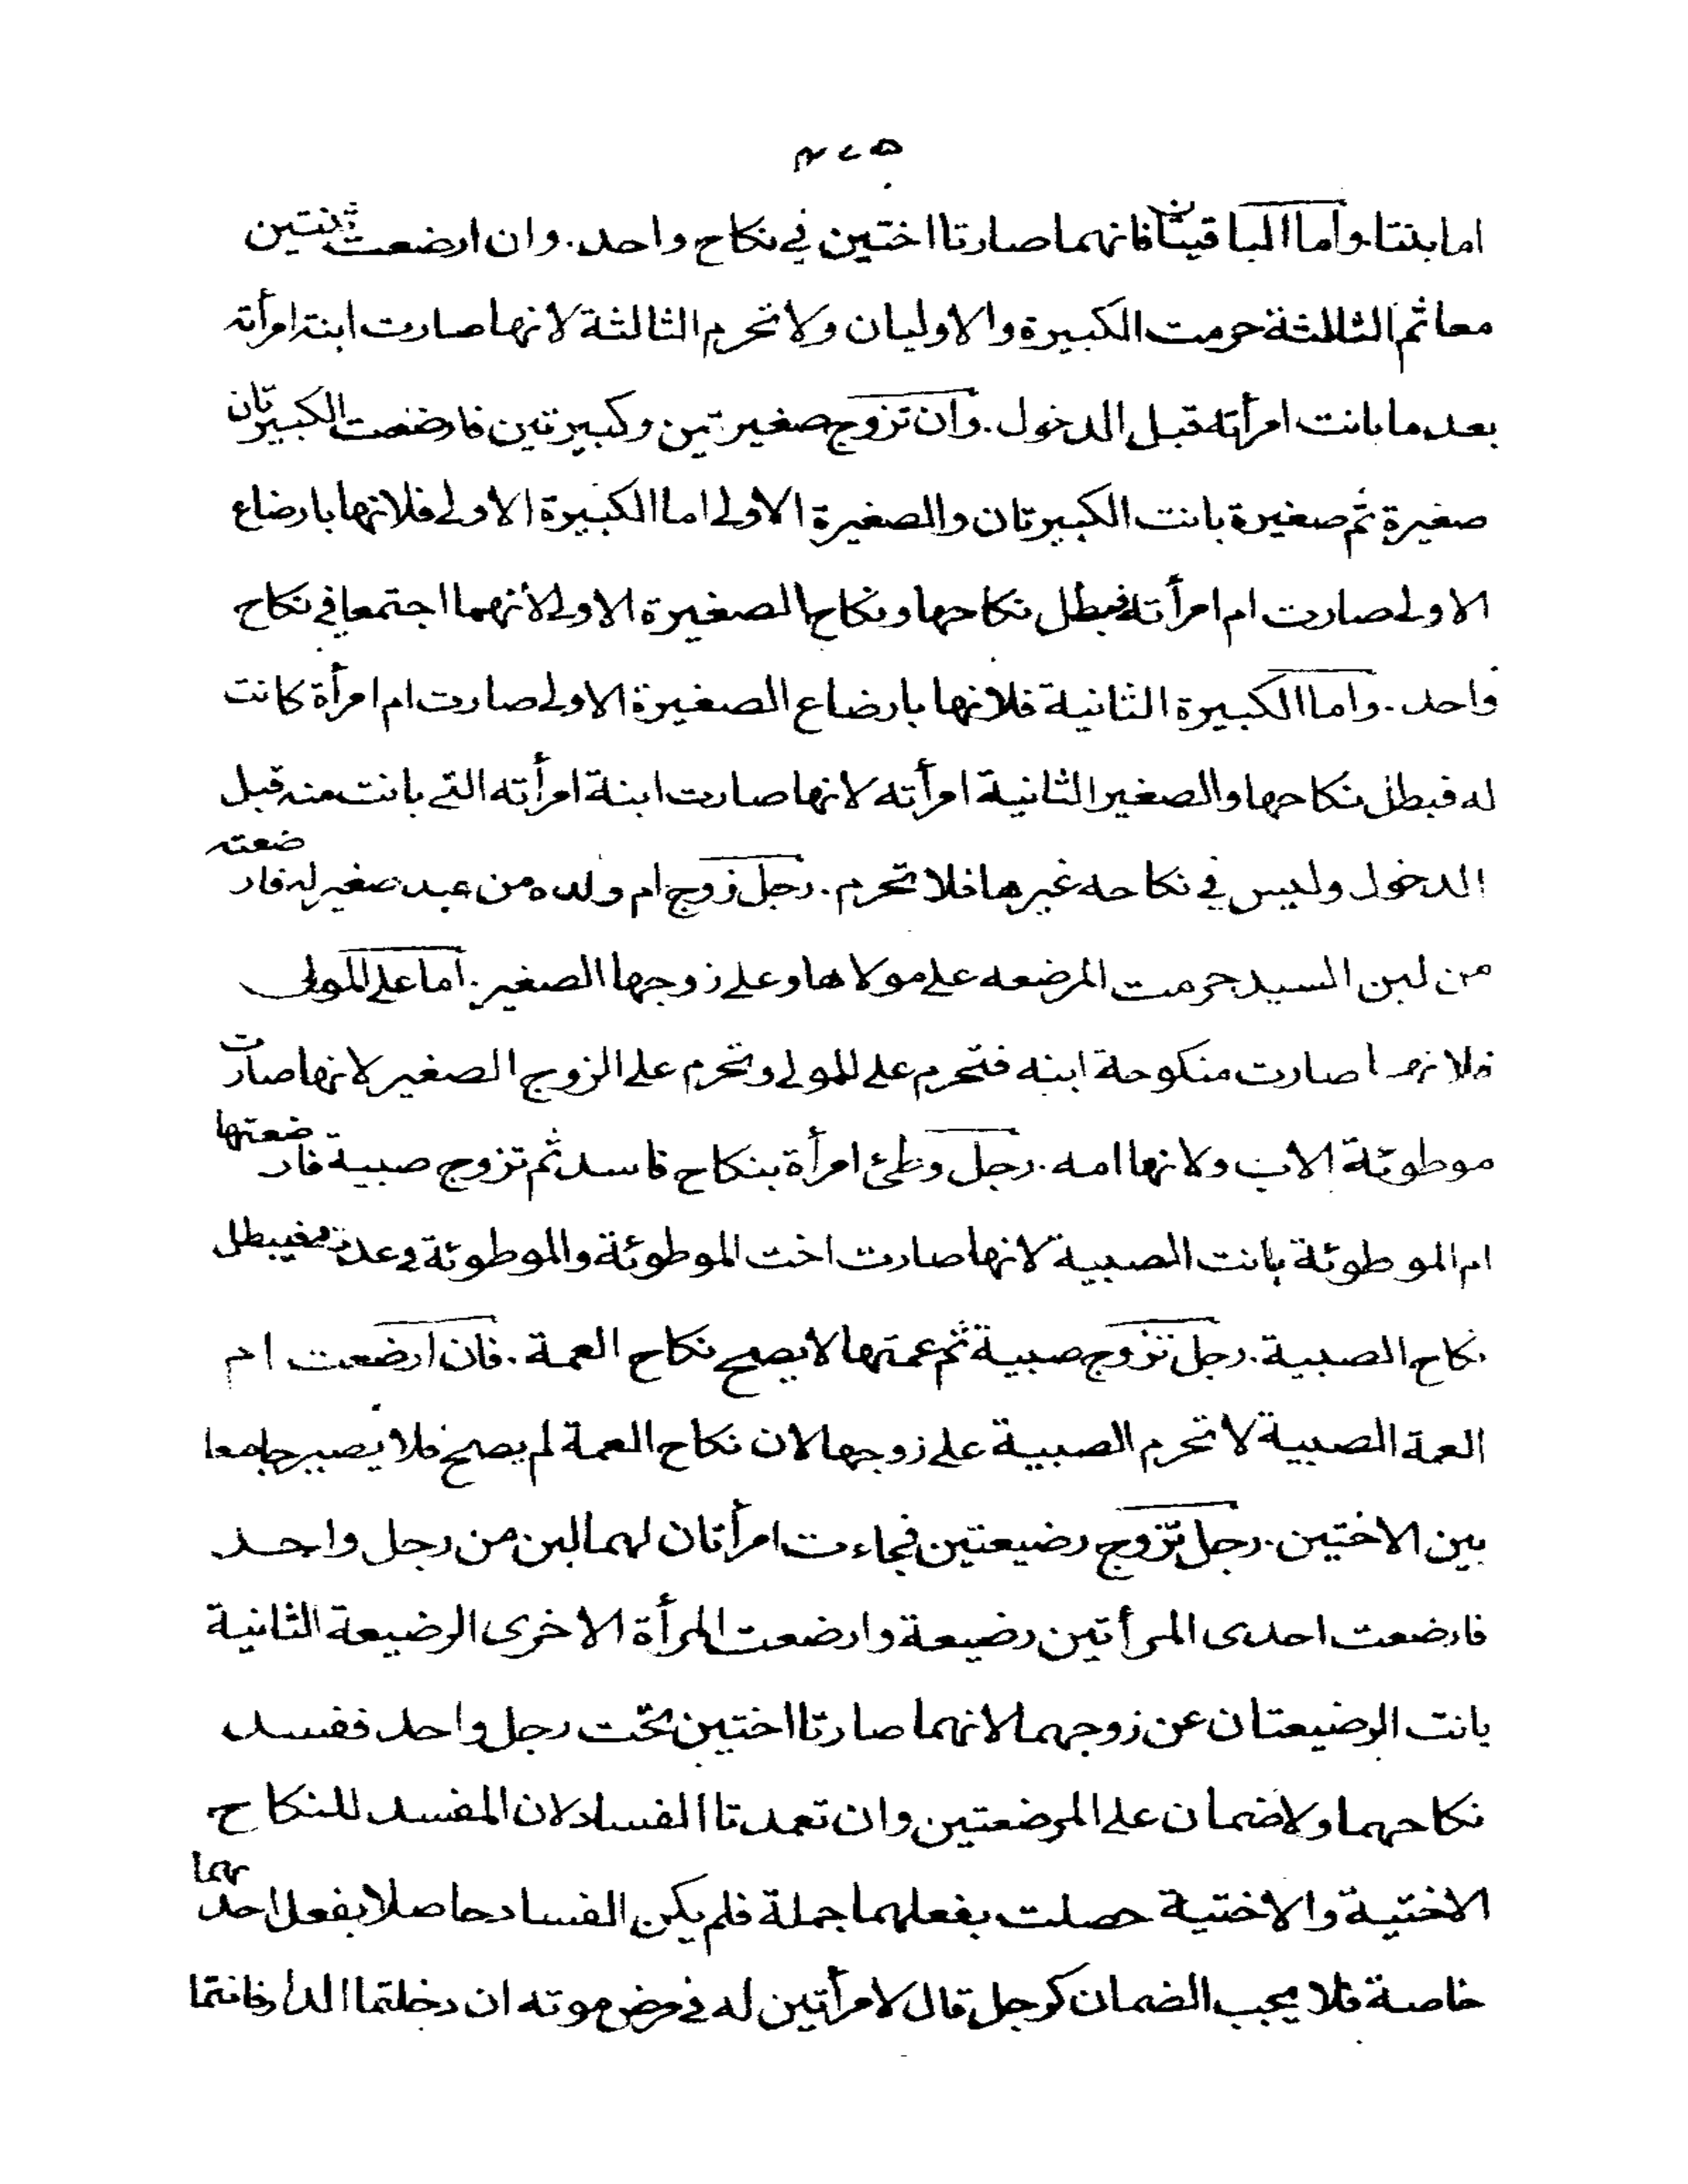 امابنتا. واما الباقيتان فانهما صارتا اختين في نكاح واحد. وان ارضعت ثنتين
معا ثم الثالثة حرمت الكبيرة والاوليان ولا تحرم الثالثة لانها صارت ابنة امرأته
بعد ما بانت امرأته قبل الدخول. وان تزوج صغيرتين وكبيرتين فارضعت الكبيرتان
صغيرة ثم صغيرة بانت الكبيرتان والصغيرة الاولى اما الكبيرة الاولى فلانها بارضاع
الاولى صارت ام امرأته فبطل نكاحها ونكاح الصغيرة الاولى لانهما اجتمعا في نكاح
واحد. واما الكبيرة الثانية فلانها بارضاع الصغيرة الاولى صارت ام امرأة كانت
له فبطل نكاحها والصغير الثانية امرأته لانها صارت ابنة امرأته التي بانت منه قبل
الدخول وليس في نكاحه غيرها فلا تحرم. رجل زوج ام ولده من عبد صغير له فارضعته
من لبن السيد حرمت المرضعه على مولاها وعلى زوجها الصغير. اما على المولى
فلانها صارت منكوحة ابنه فتحرم على المولى وتحرم على الزوج الصغير لانها صارت
موطوئة الاب ولانها امه. رجل وطئ امرأة بنكاح فاسد ثم تزوج صبية فارضعتها
ام الموطوئة بانت الصبية لانها صارت اخت الموطوئة والموطوئة في عدته فيبطل
نكاح الصبية. رجل تزوج صبية ثم عمتها لا يصح نكاح العمة. فان ارضعت ام
العمة الصبية لا تحرم الصبية على زوجها لان نكاح العمة لم يصح فلا يصير جامعا
بين الاختين. رجل تزوج رضيعتين فجاءت امرأتان لهما لبن من رجل واحد
فارضعت احدى المرأتين رضيعة وارضعت المرأة الاخرى الرضيعة الثانية
بانت الرضيعتان عن زوجهما لانهما صارتا اختين تحت رجل واحد ففسد
نكاحهما ولا ضمان على المرضعتين وان تعمدتا الفساد لان المفسد للنكاح
الاختية والاختية حصلت بفعلهما جملة فلم يكن الفساد حاصلا بفعل احدهما
خاصة فلا يجب الضمان كرجل قال لامرأتين له في مرض موته ان دخلتما الدار فانتما